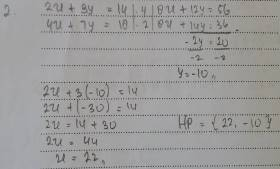 2. 2x + 3y = 14 | 4 | 8x + 12y = 56
4x + 7y = 18 | 2 | 8x + 14y = 36
-2y = 20
-2 -2
y = -10
2x + 3(-10) = 14
2x + (-30) = 14
2x = 14 + 30
2x = 44
x = 22
HP = {22, -10}